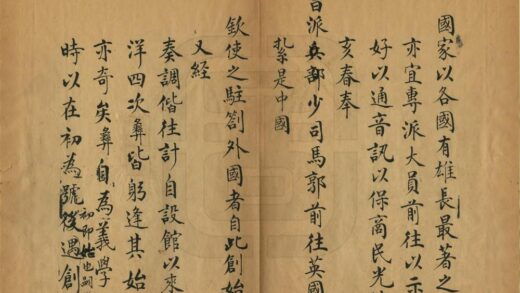 國家以各國有雄長最著之
亦宜專派大員前往以示
好以通音訊以保商民光
亥春奉
旨派兵部少司馬郭前往英國
扎是中國
欽使之駐劄外國者自此創始
又経
奏調偕往計自設館以來
洋四次彝皆躬逢其始
亦奇矣彝自為義學
初即始也嗣
時以在初為號後遇創